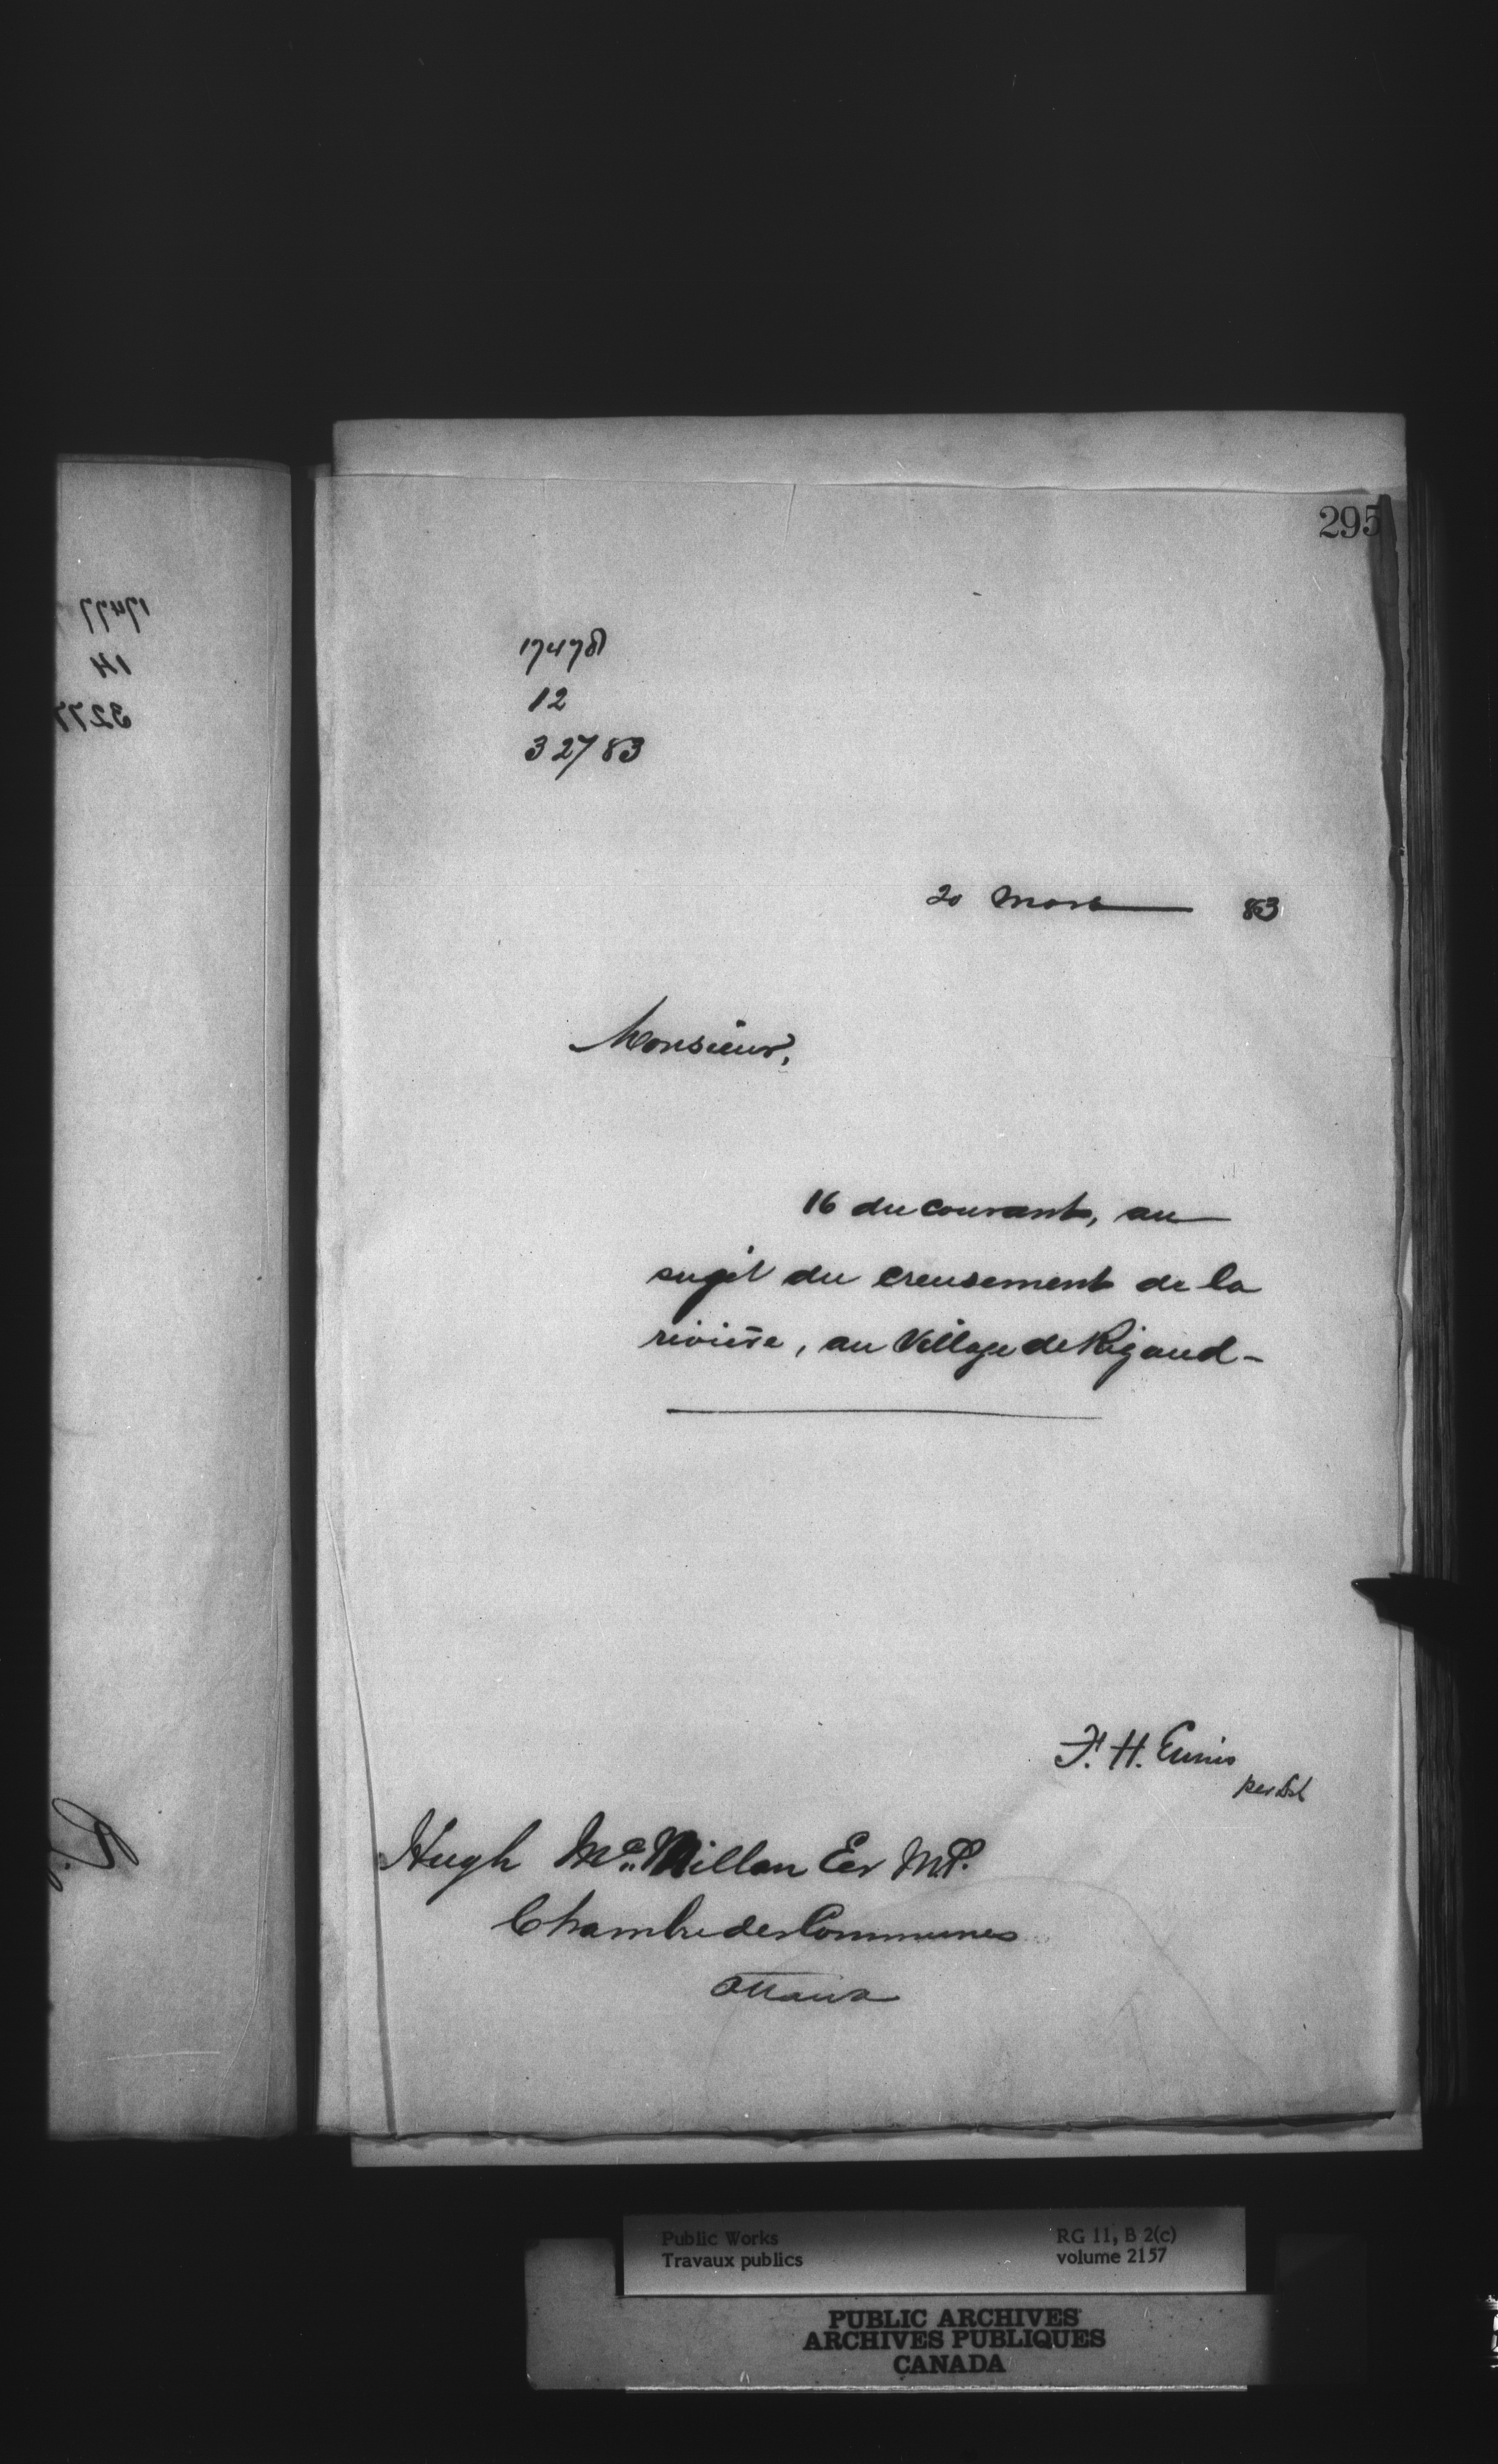 295
17478
12
32783
20 Mars 83
Monsieur,
16 du courant, au
sujet du creusement de la
rivière, au Village de Rigaud -
F. H. Ennis
per
Hugh Mc Millan Ecr M.P.
Chambre des Communes
Ottawa
17477
14
3277
Public Works
Travaux publics
RG 11, B 2(c)
volume 2157
PUBLIC ARCHIVES
ARCHIVES PUBLIQUES
CANADA